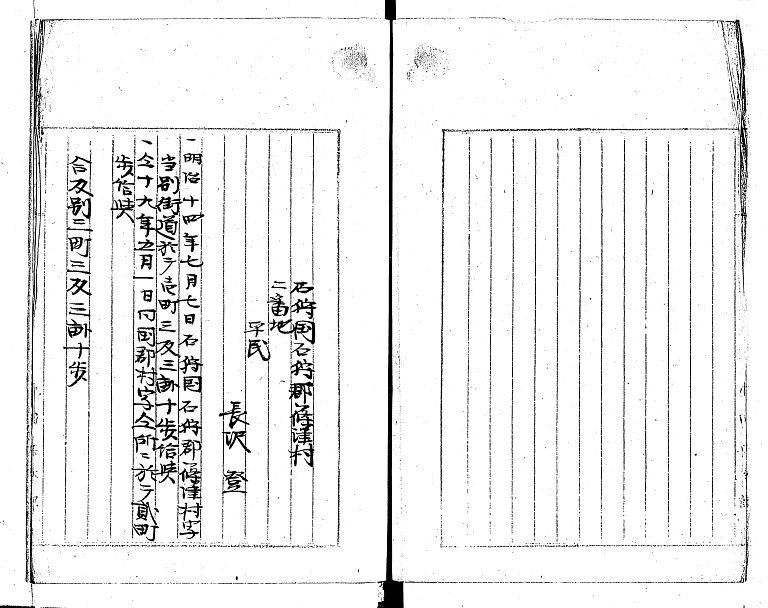 石狩国石狩郡篠津村
二番地
平民
長沢 登
一明治十四年七月七日石狩国石狩郡篠津村字
当別街道於テ壱町三反三畝十歩給与
一仝十九年五月一日同国郡村字仝所ニ於テ貳町
歩給与
合反別三町三反三畝十歩